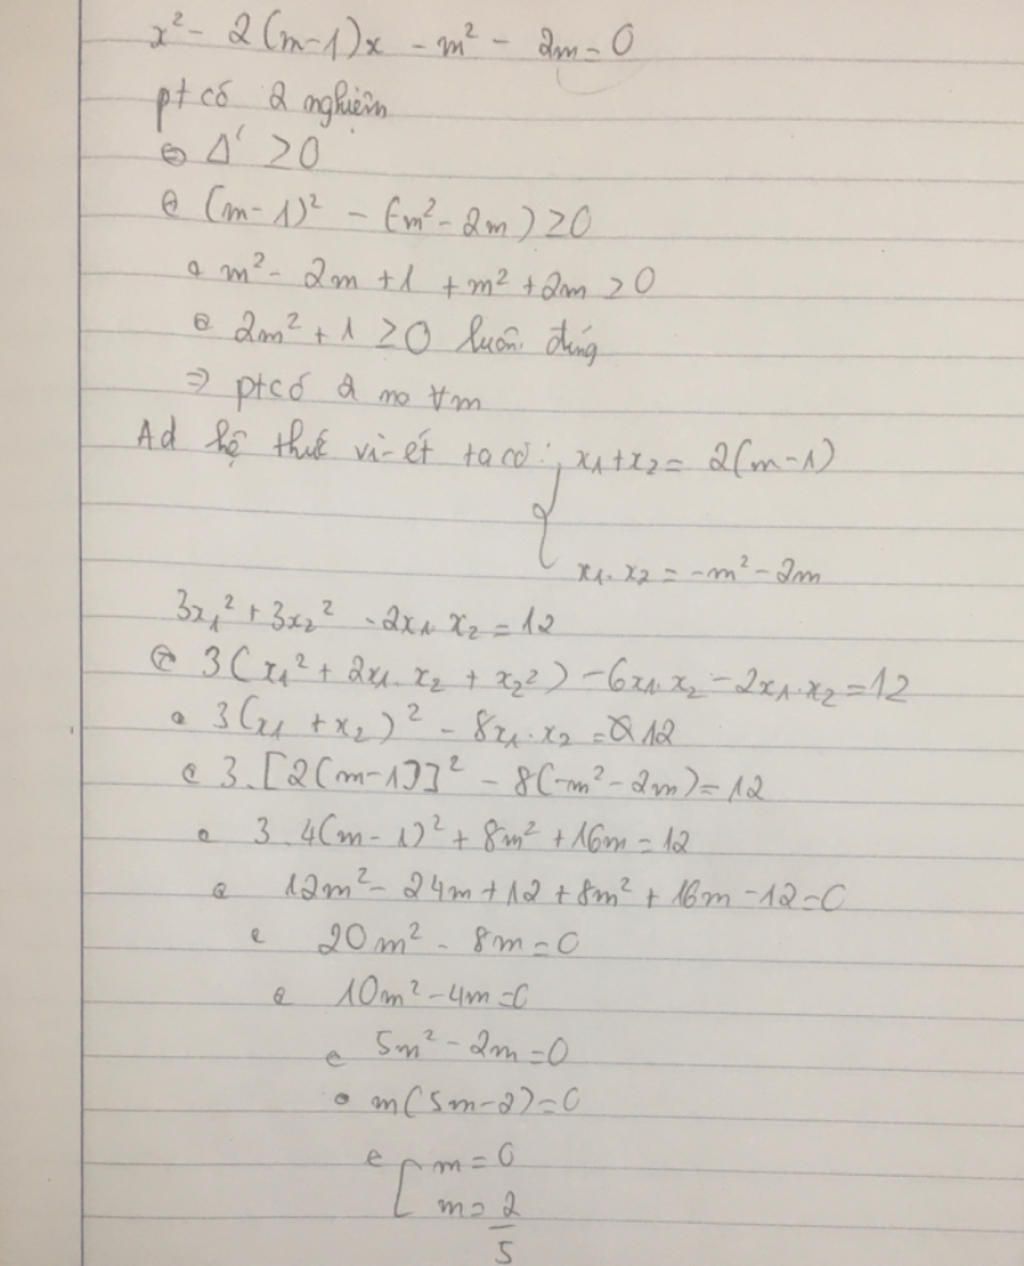 x² - 2(m-1)x - m² - 2m = 0
pt có 2 nghiệm
⇔ Δ' ≥ 0
⇔ (m-1)² - (-m² - 2m) ≥ 0
⇔ m² - 2m + 1 + m² + 2m ≥ 0
⇔ 2m² + 1 ≥ 0 luôn đúng
⇒ pt có 2 no ∀m
Ad hệ thức vi-ét ta có: { x₁ + x₂ = 2(m-1)
x₁. x₂ = -m² - 2m
3x₁² + 3x₂² - 2x₁. x₂ = 12
⇔ 3(x₁² + 2x₁. x₂ + x₂²) - 6x₁. x₂ - 2x₁. x₂ = 12
⇔ 3(x₁ + x₂)² - 8x₁. x₂ = 12
⇔ 3.[2(m-1)]² - 8(-m² - 2m) = 12
⇔ 3.4(m-1)² + 8m² + 16m = 12
⇔ 12m² - 24m + 12 + 8m² + 16m - 12 = 0
⇔ 20m² - 8m = 0
⇔ 10m² - 4m = 0
⇔ 5m² - 2m = 0
⇔ m(5m-2) = 0
⇔ [ m = 0
m = 2/5